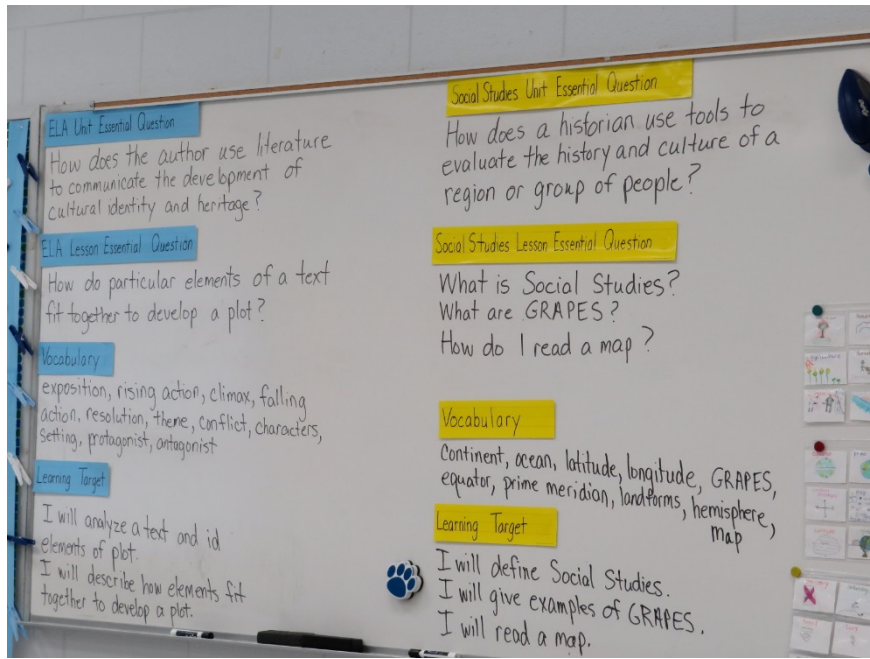 ELA Unit Essential Question
How does the author use literature
to communicate the development of
cultural identity and heritage?
ELA Lesson Essential Question
How do particular elements of a text
fit together to develop a plot?
Vocabulary
exposition, rising action, climax, falling
action, resolution, theme, conflict, characters,
setting, protagonist, antagonist
Learning Target
I will analyze a text and id
elements of plot.
I will describe how elements fit
together to develop a plot.
Social Studies Unit Essential Question
How does a historian use tools to
evaluate the history and culture of a
region or group of people?
Social Studies Lesson Essential Question
What is Social Studies?
What are GRAPES?
How do I read a map?
Vocabulary
Continent, ocean, latitude, longitude, GRAPES,
equator, prime meridian, landforms, hemisphere,
map
Learning Target
I will define Social Studies.
I will give examples of GRAPES.
I will read a map.